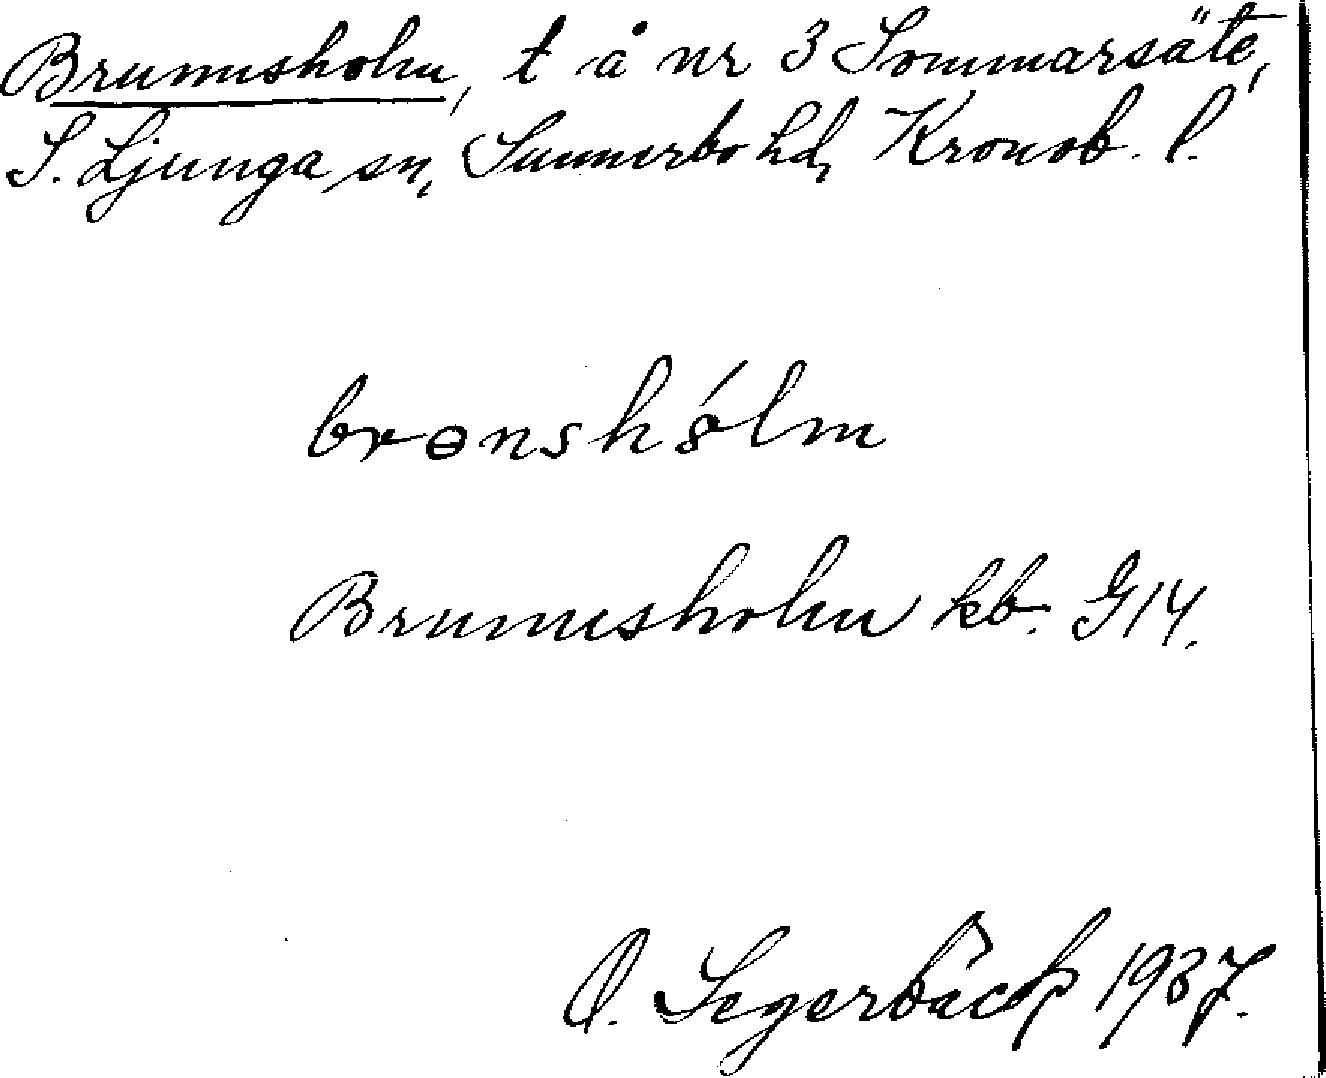 Brunnsholm, t å nr 3 Sommarsäte,
S. Ljunga sn, Sunnerbo hd, Kronob. l.
brɵnshålm
Brunnsholm kb. G14.
O. Segerbäck 1937.